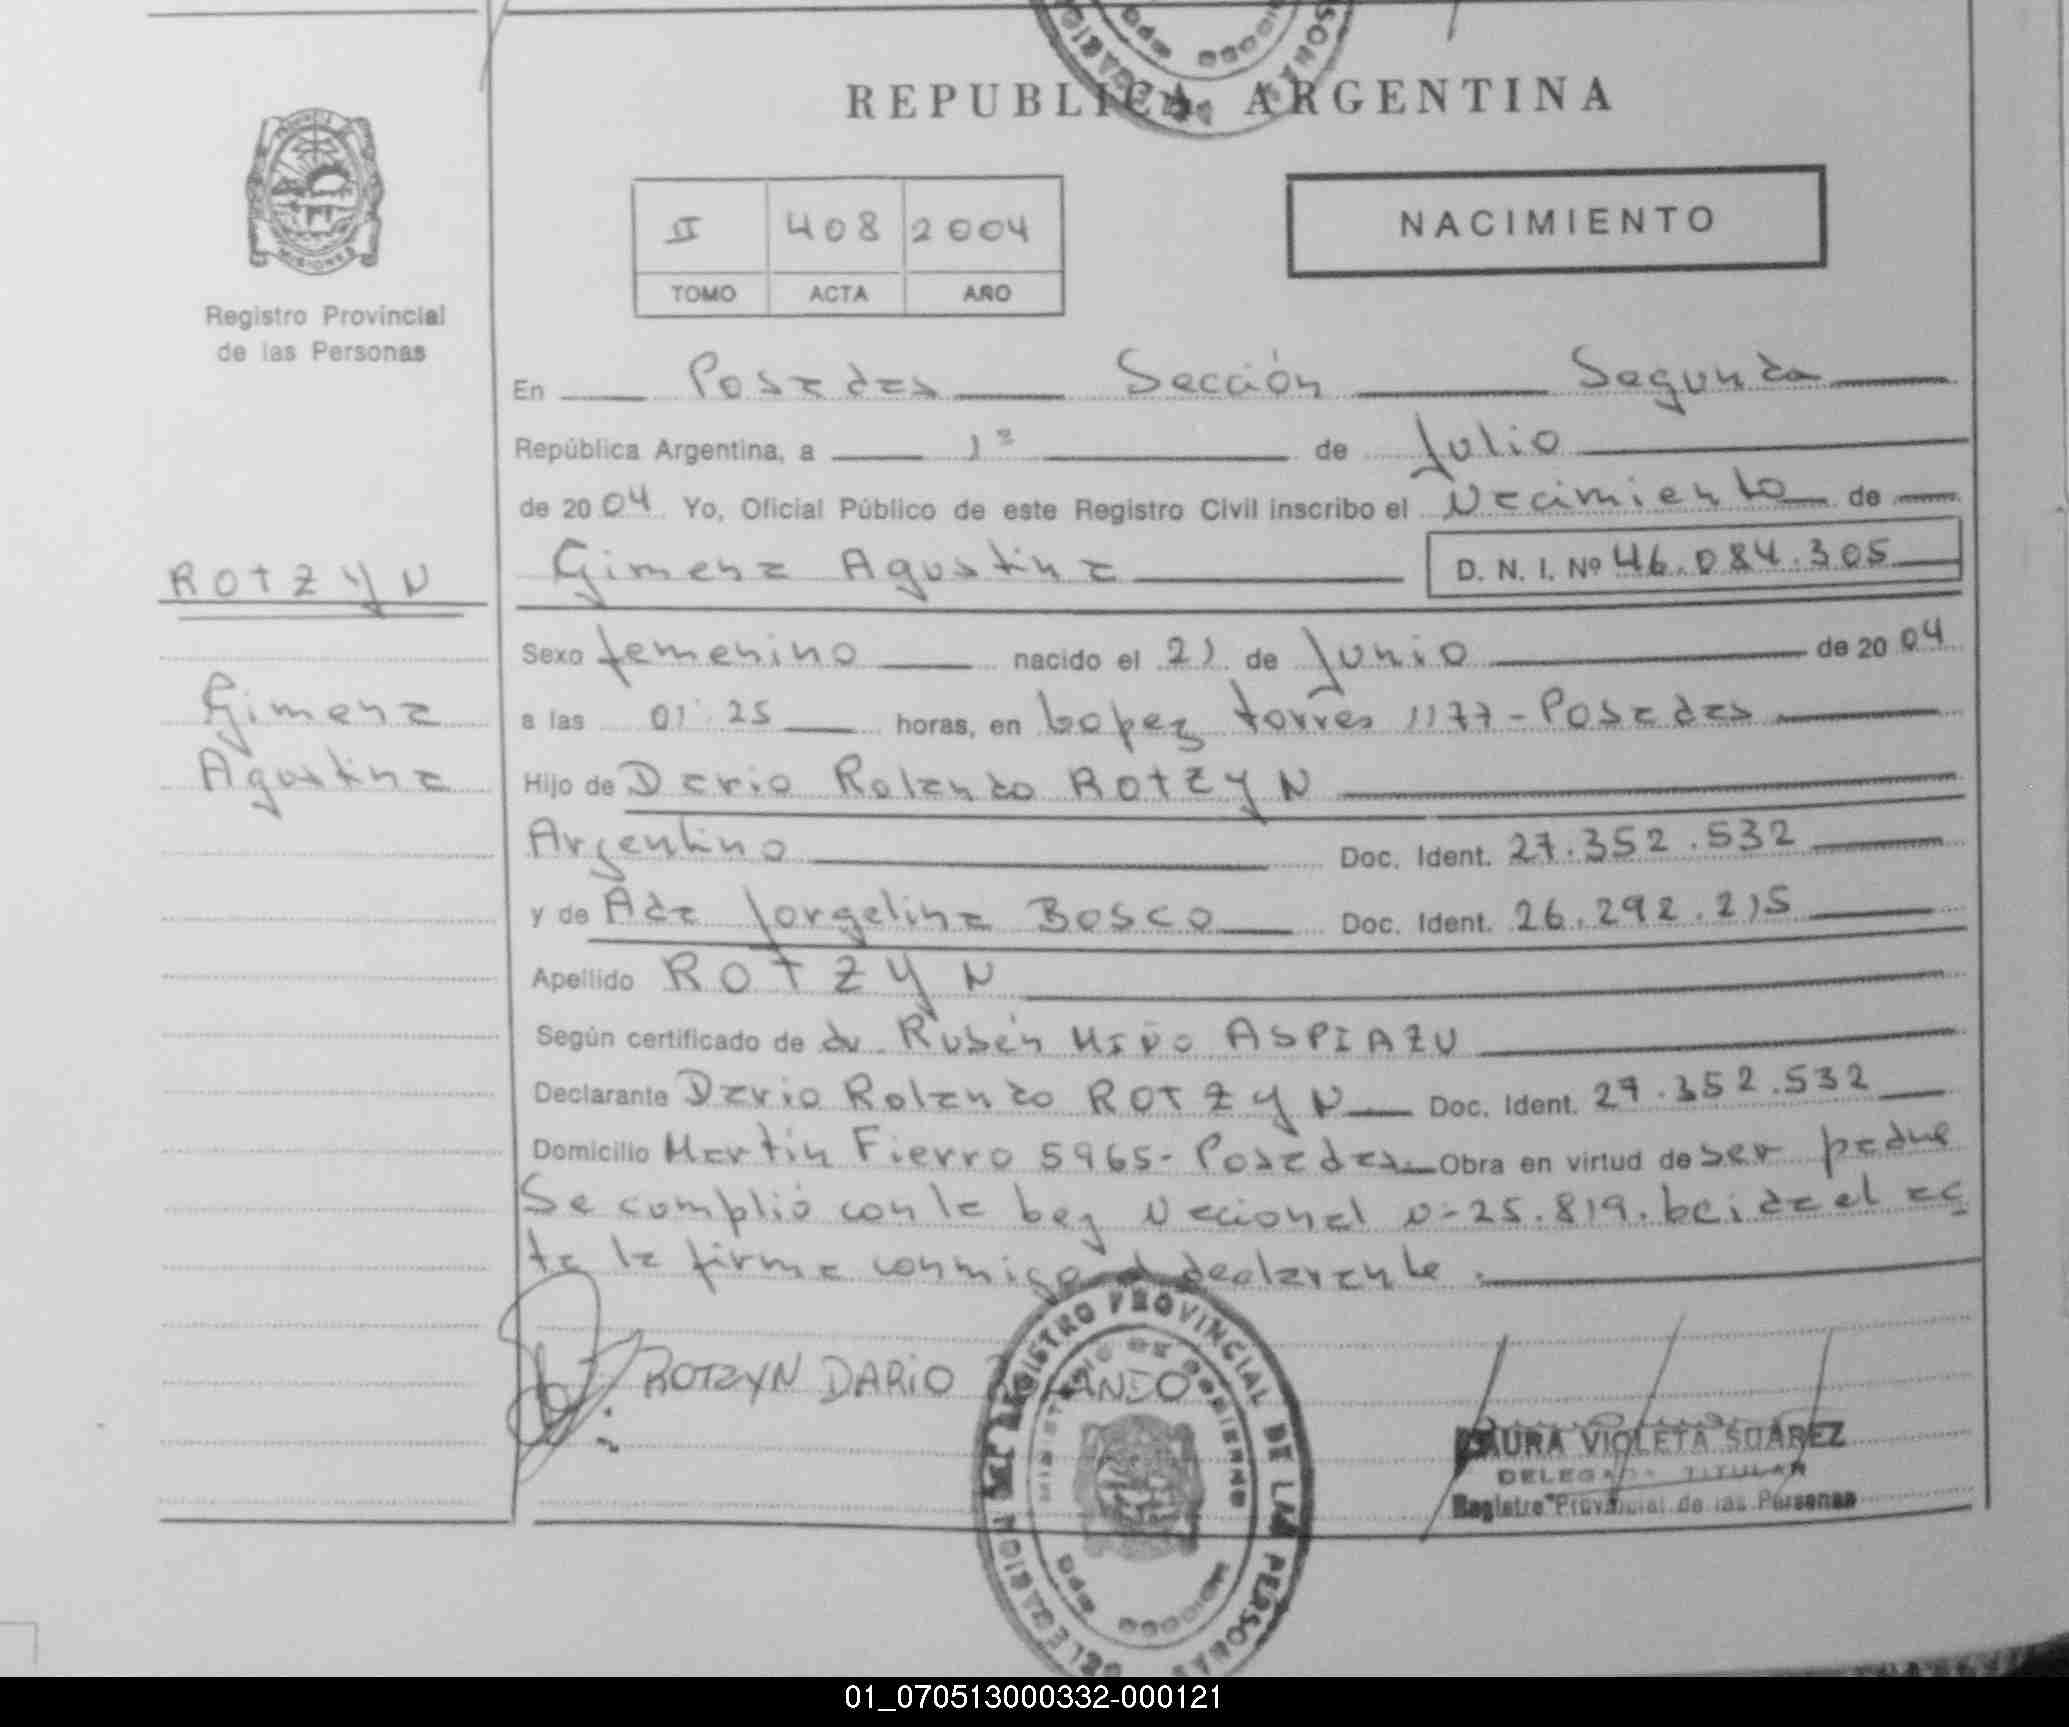 REPUBLICA ARGENTINA
MISIONES
Registro Provincial
de las Personas
II 408 2004
TOMO ACTA AÑO
NACIMIENTO
En Posadas Sección Segunda
República Argentina, a 1º de Julio
de 2004 Yo, Oficial Público de este Registro Civil inscribo el Nacimiento de
ROTZYN
Gimena Agustina D. N. I. Nº 46.084.305
Sexo femenino nacido el 21 de Junio de 2004
Gimena
a las 01:25 horas, en Lopez torres 1177 - Posadas
Agustina
Hijo de Dario Rolando ROTZYN
Argentino Doc. Ident. 27.352.532
y de Ada Jorgelina BOSCO Doc. Ident. 26.292.215
Apellido ROTZYN
Según certificado de dr. Rubén ASPIAZU
Declarante Dario Rolando ROTZYN Doc. Ident. 27.352.532
Domicilio Martín Fierro 5965 - Posadas Obra en virtud de ser padre
Se cumplió con la Ley Nacional Nº 25.819. Leída el ac
ta la firma conmigo el declarante.
ROTZYN DARIO ROLANDO
REGISTRO PROVINCIAL DE LAS PERSONAS
MINISTERIO DE GOBIERNO
LAURA VIOLETA SUAREZ
DELEGADA TITULAR
Registro Provincial de las Personas
01_070513000332-000121